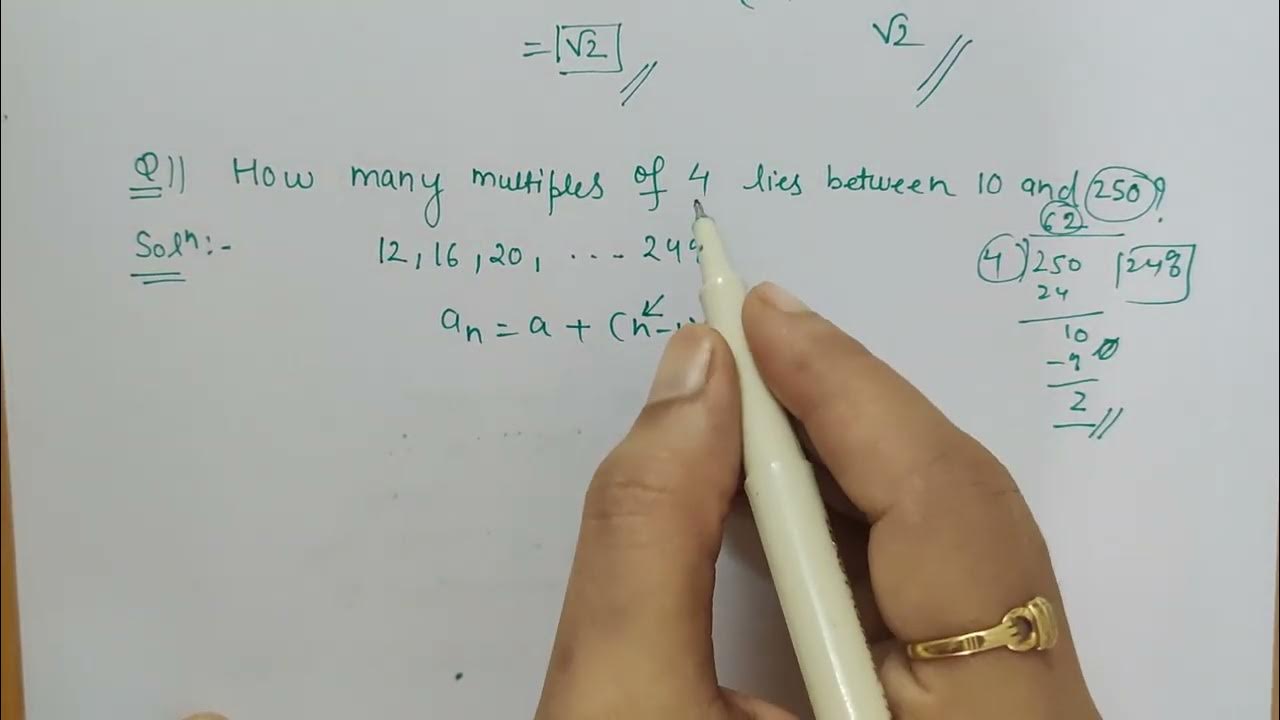 = √2 √2
Q11 How many multiples of 4 lies between 10 and 250?
Solⁿ:- 12, 16, 20, ... 248
aₙ = a + (n-1)
62
4)250 248
24
10
-8
2